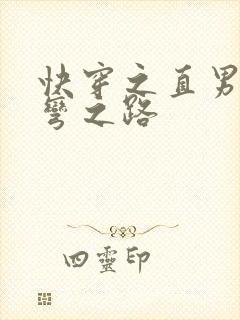 快穿之直男
彎之路
四靈印